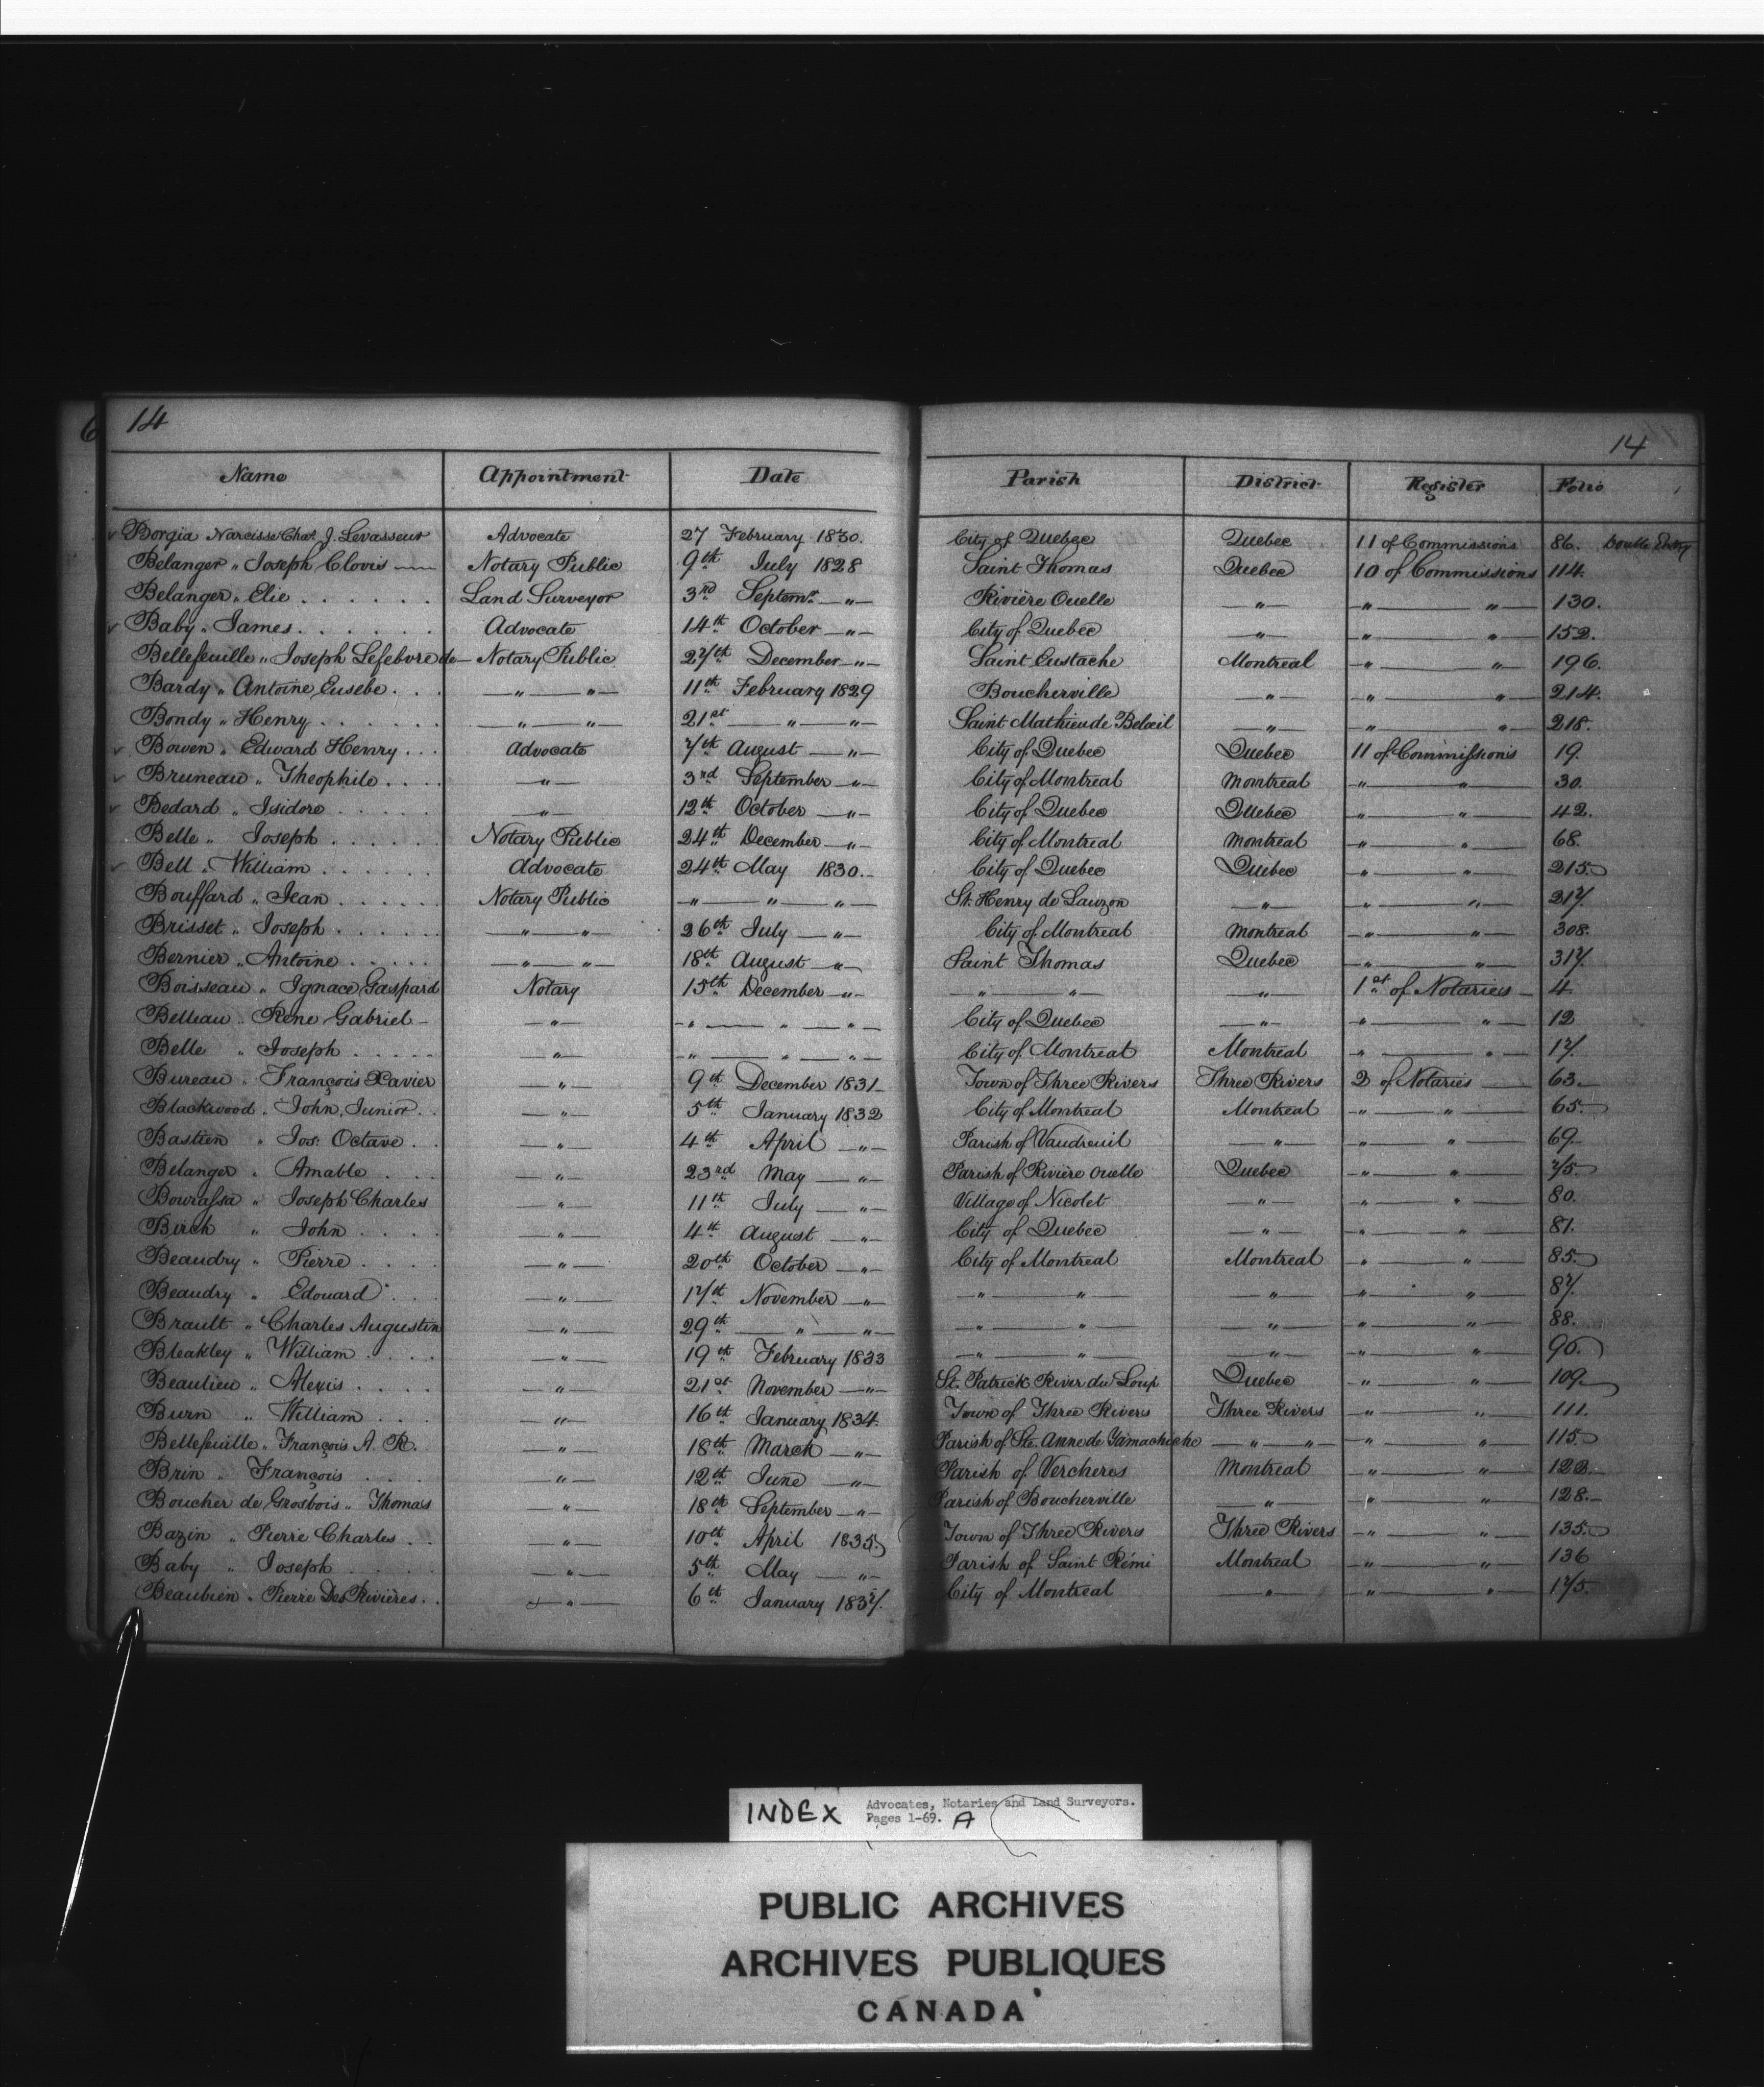 6 14
14
Name Appointment Date Parish District Register Folio
Borgia Narcisse Chas. J. Levasseur Advocate 27 February 1830. City of Quebec Quebec 11 of Commissions 86. Double Entry
Belanger „ Joseph Clovis — Notary Public 9th July 1828 Saint Thomas Quebec 10 of Commissions 114.
Belanger „ Elie . . . . . . Land Surveyor 3rd Septemr. — „ — Rivière Ouelle — „ — — „ — „ — 130.
Baby „ James. . . . . . Advocate 14th October — „ — City of Quebec — „ — — „ — „ — 152.
Bellefeuille „ Joseph Lefebvre de — Notary Public 27th December — „ — Saint Eustache Montreal — „ — „ — 196.
Bardy „ Antoine Eusebe. . . — „ — „ — 11th February 1829 Boucherville — „ — — „ — „ — 214.
Bondy „ Henry . . . . . . — „ — „ — 21st — „ — „ — Saint Mathieu de Belœil — „ — — „ — „ — 218.
Bowen „ Edward Henry . . . Advocate 7th August — „ — City of Quebec Quebec 11 of Commissions 19.
Bruneau „ Theophile . . . . — „ — 3rd September „ — City of Montreal Montreal — „ — „ — 30.
Bedard „ Isidore . . . . . — „ — 12th October — „ — City of Quebec Quebec — „ — „ — 42.
Belle „ Joseph . . . . . . Notary Public 24th December — „ — City of Montreal Montreal — „ — „ — 68.
Bell „ William . . . . . . Advocate 24th May 1830. — City of Quebec Quebec — „ — „ — 215.
Bouffard „ Jean . . . . . . Notary Public — „ — „ — „ — St. Henry de Lauzon — „ — — „ — „ — 217.
Brisset „ Joseph . . . . . . — „ — „ — 26th July — „ — City of Montreal Montreal — „ — „ — 308.
Bernier „ Antoine . . . . . — „ — „ — 18th August — „ — Saint Thomas Quebec — „ — „ — 317.
Boisseau „ Ignace Gaspard Notary 15th December — „ — — „ — „ — — „ — 1st of Notaries — 4.
Belleau „ Rene Gabriel — — „ — — „ — „ — „ — City of Quebec — „ — — „ — „ — 12
Belle „ Joseph . . . . . — „ — — „ — „ — „ — City of Montreal Montreal — „ — „ — 17.
Bureau „ François Xavier — „ — 9th December 1831 — Town of Three Rivers Three Rivers 2 of Notaries — 63. —
Blackwood „ John, Junior. . — „ — 5th January 1832 City of Montreal Montreal — „ — „ — 65.
Bastien „ Jos: Octave . . — „ — 4th April — „ — Parish of Vaudreuil — „ — — „ — „ — 69.
Belanger „ Amable . . . — „ — 23rd May — „ — Parish of Rivière Ouelle Quebec — „ — „ — 75.
Bourassa „ Joseph Charles — „ — 11th July — „ — Village of Nicolet — „ — — „ — „ — 80.
Birch „ John . . . . — „ — 4th August — „ — City of Quebec — „ — — „ — „ — 81.
Beaudry „ Pierre . . . . — „ — 20th October — „ — City of Montreal Montreal — „ — „ — 85.
Beaudry „ Edouard . . . — „ — 17th November — „ — — „ — „ — — „ — — „ — „ — 87.
Brault „ Charles Augustin — „ — 29th — „ — „ — — „ — „ — — „ — — „ — „ — 88.
Bleakley „ William . . . . — „ — 19th February 1833 — „ — „ — — „ — — „ — „ — 90.
Beaulieu „ Alexis . . . . — „ — 21st November — „ — St. Patrick River du Loup Quebec — „ — „ — 109.
Burn „ William . . . — „ — 16th January 1834. Town of Three Rivers Three Rivers — „ — „ — 111.
Bellefeuille „ François A. R. — „ — 18th March — „ — Parish of Ste. Anne de Yamachiche — „ — „ — — „ — „ — 115.
Brin „ François . . . — „ — 12th June — „ — Parish of Vercheres Montreal — „ — „ — 123. —
Boucher de Grosbois „ Thomas — „ — 18th September — „ — Parish of Boucherville — „ — — „ — „ — 128. —
Bazin „ Pierre Charles . . — „ — 10th April 1835. Town of Three Rivers Three Rivers — „ — „ — 135.
Baby „ Joseph . . . . — „ — 5th May — „ — Parish of Saint Rémi Montreal — „ — „ — 136
Beaubien „ Pierre Des Rivières. . — „ — 6th January 1837. City of Montreal — „ — — „ — „ — 175.
INDEX Advocates, Notaries and Land Surveyors.
Pages 1-69. A
PUBLIC ARCHIVES
ARCHIVES PUBLIQUES
CANADA